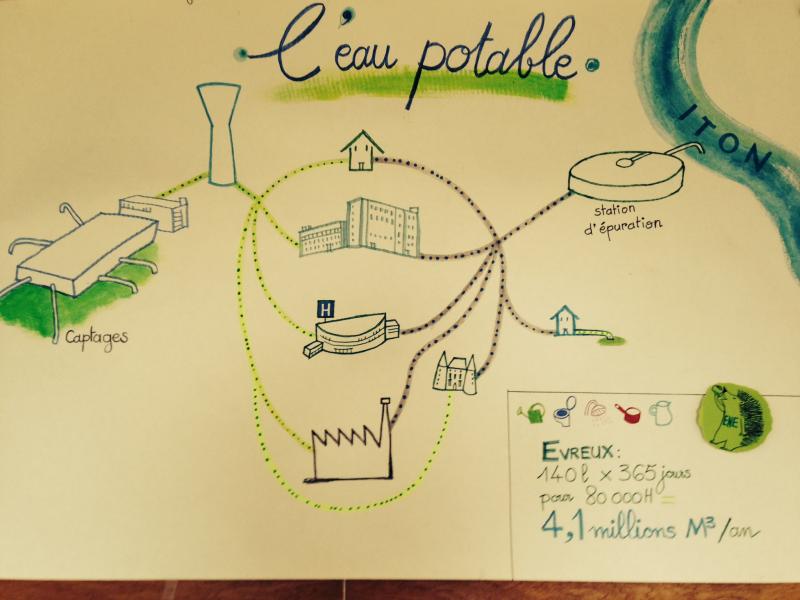 L'eau potable
ITON
station
d'épuration
Captages
H
ENE
EVREUX:
140 l x 365 jours
pour 80 000 H =
4,1 millions M³/an